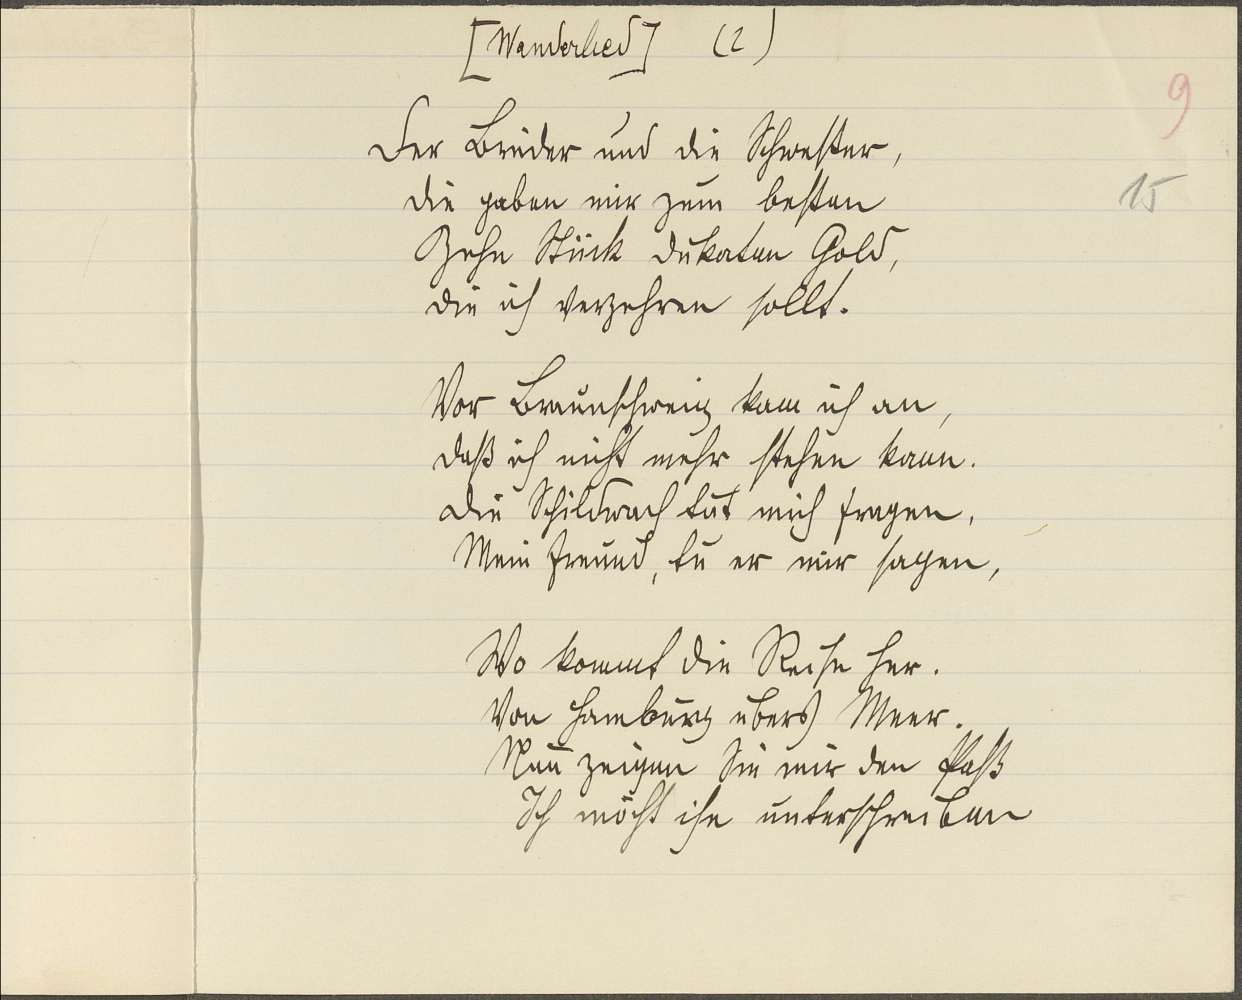 [Wanderlied] (2)
9
Der Bruder und die Schwester,
15
die gaben mir zum besten
Zehn Stück Dukaten Gold,
die ich verzehren sollt.
Vor Braunschweig kam ich an,
daß ich nicht mehr stehen kann.
Die Schildwach tut mich fragen,
Mein Freund, tu er mir sagen,
Wo kommt die Reise her.
Von Hamburg übers Meer.
Nun zeigen Sie mir den Paß
Ich möcht ihn unterschreiben